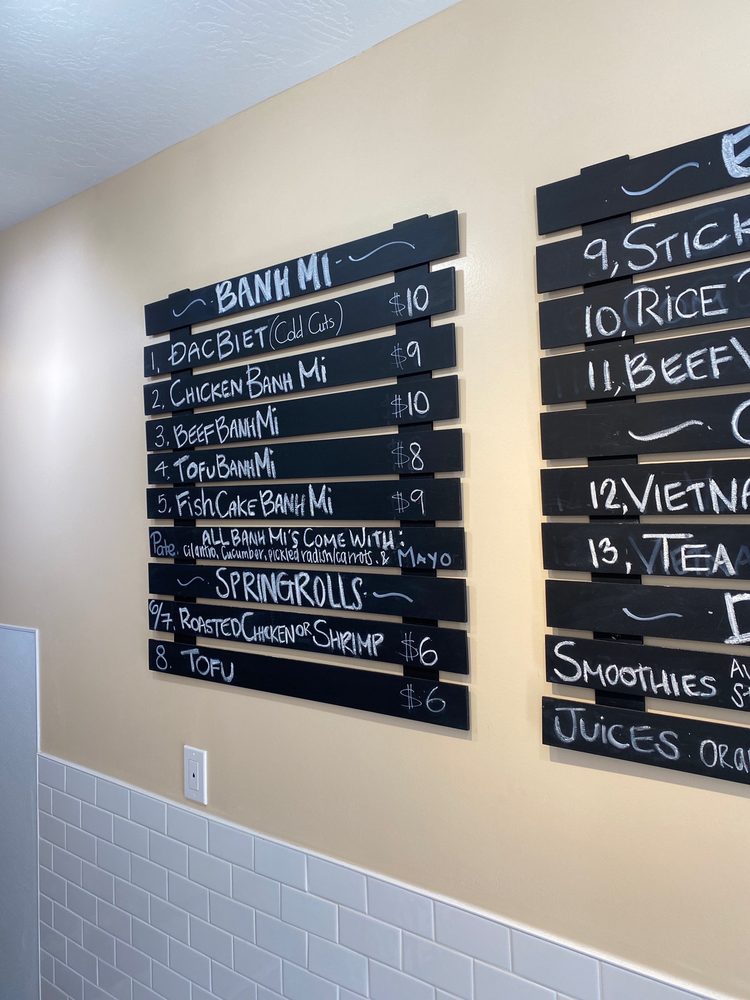 ~ BANH MI ~
1. ĐAC BIET (Cold Cuts) $10
2. CHICKEN BANH Mi $9
3. BEEF BANH Mi $10
4. TOFU BANH Mi $8
5, FISH CAKE BANH Mi $9
ALL BANH Mi'S COME WITH:
Pate. cilantro, cucumber, pickled radish/carrots. & MAYO
~ SPRINGROLLS ~
6/7. ROASTED CHICKEN OR SHRIMP $6
8. TOFU $6
~
9,
10, RICE
11, BEEF
~
12,
13, TEA
~
SMOOTHIES
JUICES.